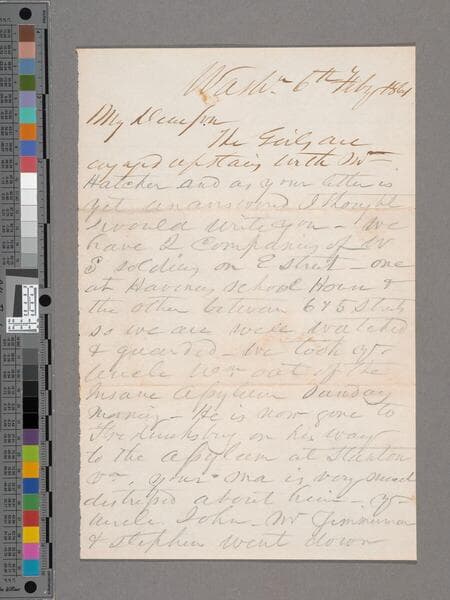 Washn. 6th Feby 1861
My Dear Jno.
The Girls are
engaged upstairs with Mr
Hatcher and as your letter is
yet unanswered I thought
I would write you - We
have 2 Companies of U
S soldiers on E street - one
at school House &
the other between 6 & 5 Streets
so we are well watched
& guarded - We took yr
Uncle out of the
Insane Asylum Sunday
Morning - He is now gone to
Fredricksburg on his way
to the Asylum at Stanton
Va. your Ma is very much
distressed about him - yr
Uncle John - Mr Zimmerman
& Stephen went down